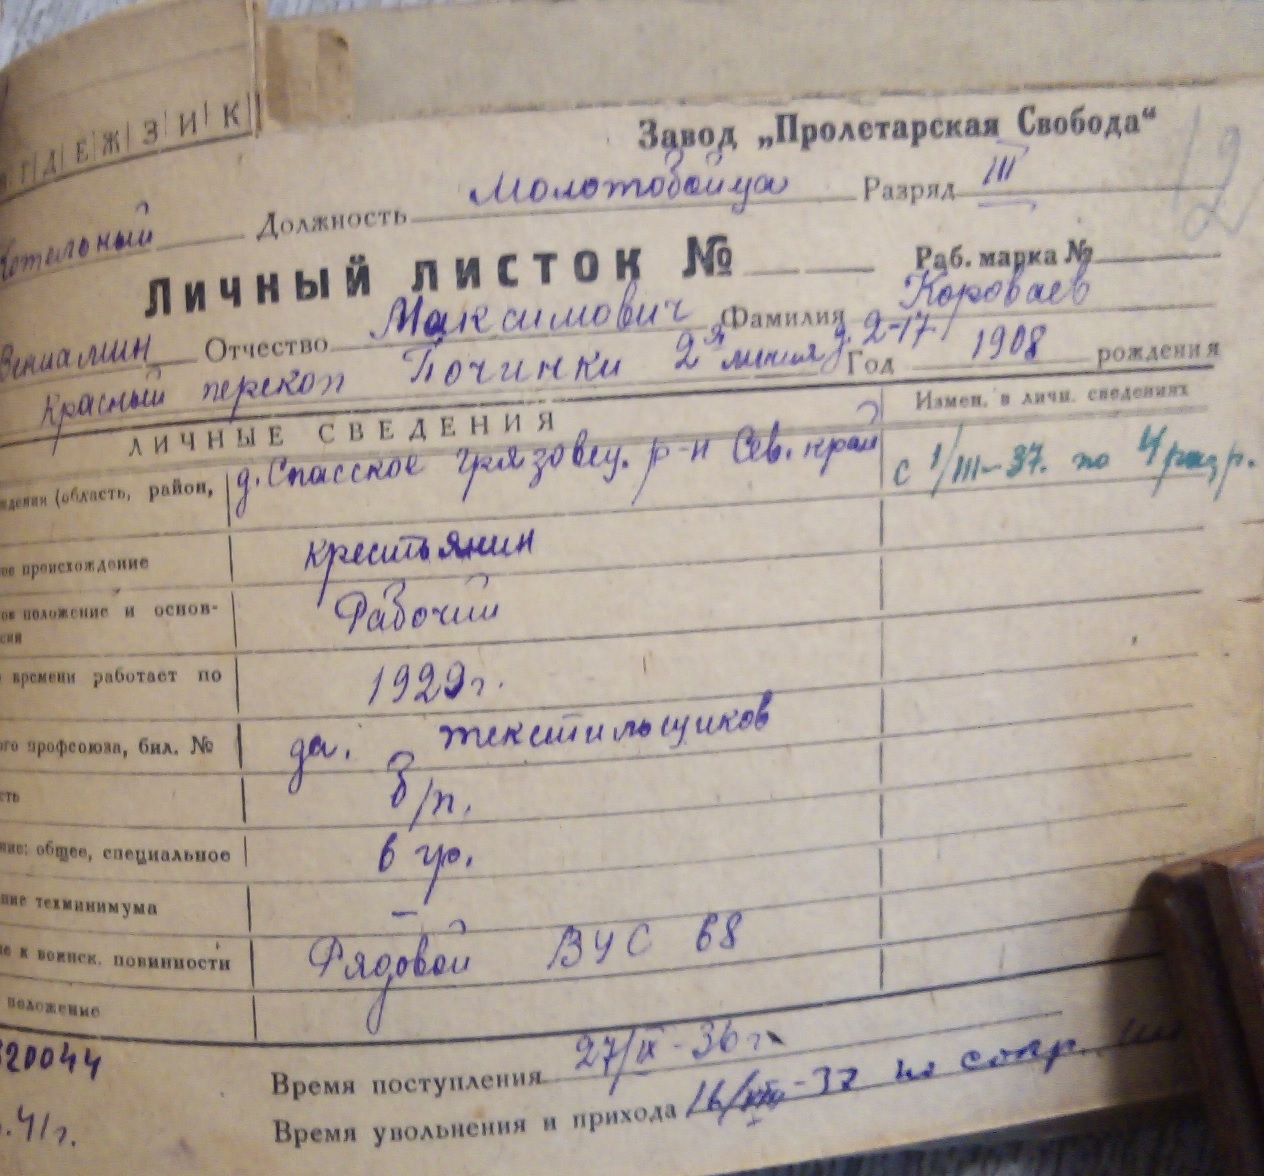 Г Д Е Ж З И К
Завод „Пролетарская Свобода“
12
Котельный Должность Молотобойца Разряд III
Личный листок № Раб. марка №
Вениамин Отчество Максимович Фамилия Короваев
Красный перекоп Починки 2я линия д. 2-17 Год 1908 рождения
ЛИЧНЫЕ СВЕДЕНИЯ Измен. в личн. сведениях
ждения (область, район, д. Спасское грязовец. р-н Сев. край с 1/III-37. по 4 разр.
ое происхождение крестьянин
ое положение и основ-
сия Рабочий
времени работает по 1929 г.
ого профсоюза, бил. № да. текстильщиков
сть б/п.
ние: общее, специальное 6 гр.
ние техминимума –
ие к воинск. повинности Рядовой ВУС 68
положение
320044 Время поступления 27/IX-36 г.
41 г. Время увольнения и прихода 16/ -37 по сокр.